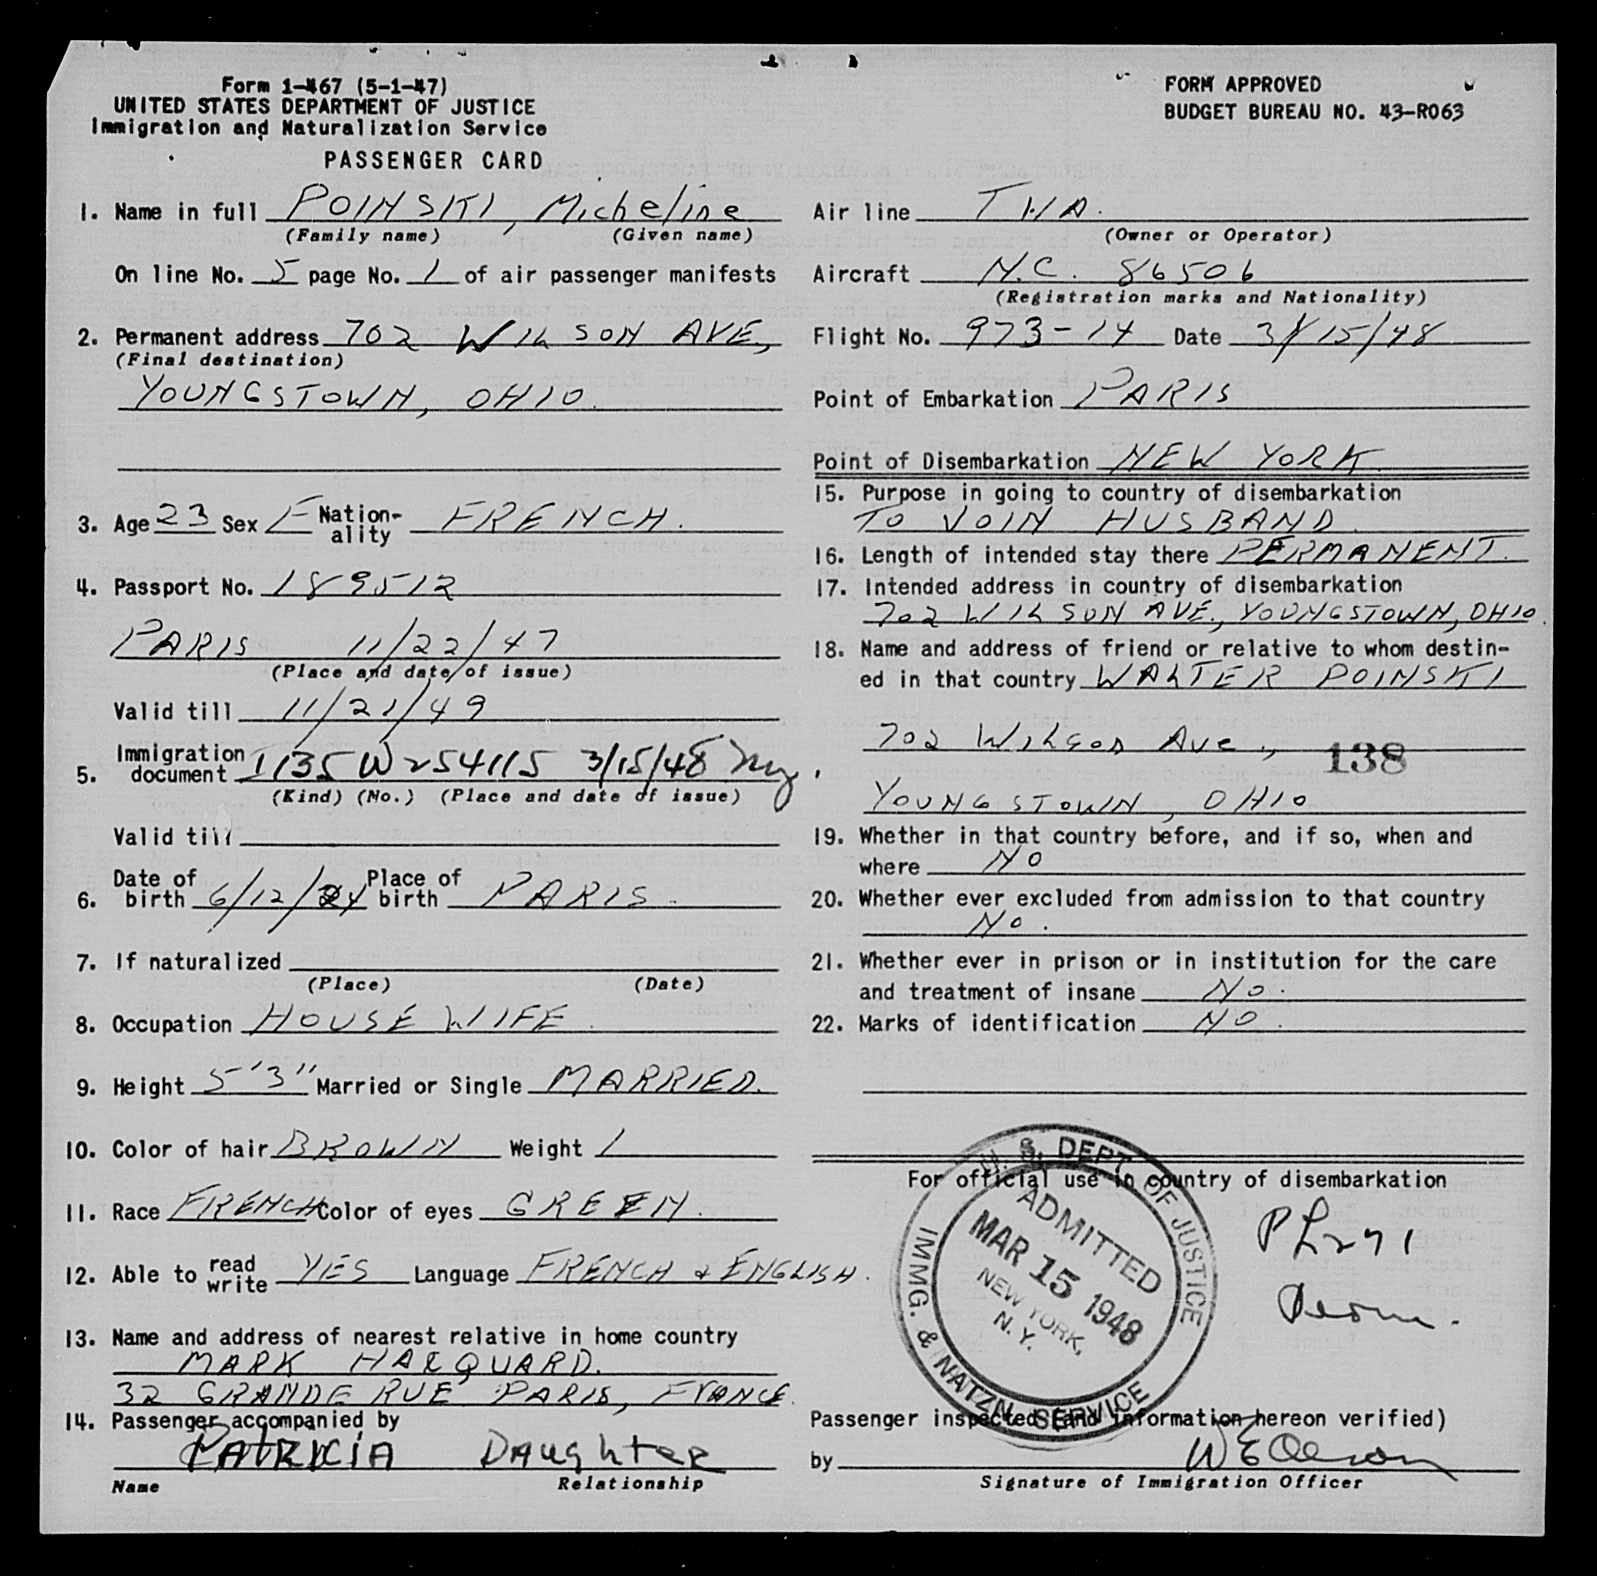 Form 1-467 (5-1-47)
UNITED STATES DEPARTMENT OF JUSTICE
Immigration and Naturalization Service
PASSENGER CARD
FORM APPROVED
BUDGET BUREAU NO. 43-R063
1. Name in full POINSKI, Micheline
(Family name) (Given name)
On line No. 5 page No. 1 of air passenger manifests
2. Permanent address 702 WILSON AVE,
(Final destination)
YOUNGSTOWN, OHIO.
3. Age 23 Sex F Nation-ality FRENCH.
4. Passport No. 189512
PARIS 11/22/47
(Place and date of issue)
Valid till 11/21/49
5. Immigration document I 135 W254115 3/15/48 NY
(Kind) (No.) (Place and date of issue)
Valid till
6. Date of birth 6/12/24 Place of birth PARIS.
7. If naturalized
(Place) (Date)
8. Occupation HOUSE WIFE.
9. Height 5'3" Married or Single MARRIED.
10. Color of hair BROWN Weight /
11. Race FRENCH Color of eyes GREEN.
12. Able to read write YES Language FRENCH & ENGLISH.
13. Name and address of nearest relative in home country
MARK HACQUARD.
32 GRANDE RUE PARIS, FRANCE.
14. Passenger accompanied by
PATRICIA DAUGHTER
Name Relationship
Air line TWA.
(Owner or Operator)
Aircraft N.C. 86506
(Registration marks and Nationality)
Flight No. 973-14 Date 3/15/48
Point of Embarkation PARIS
Point of Disembarkation NEW YORK
15. Purpose in going to country of disembarkation
TO JOIN HUSBAND.
16. Length of intended stay there PERMANENT.
17. Intended address in country of disembarkation
702 WILSON AVE., YOUNGSTOWN, OHIO.
18. Name and address of friend or relative to whom destin-
ed in that country WALTER POINSKI
702 Wilson Ave.,
138
YOUNGSTOWN, OHIO
19. Whether in that country before, and if so, when and
where NO
20. Whether ever excluded from admission to that country
No.
21. Whether ever in prison or in institution for the care
and treatment of insane NO.
22. Marks of identification NO.
For official use in country of disembarkation
U. S. DEPT. OF JUSTICE
ADMITTED
MAR 15 1948
NEW YORK,
N. Y.
IMMG. & NATZN. SERVICE
PL271
Perm.
Passenger inspected (and information hereon verified)
by
Signature of Immigration Officer